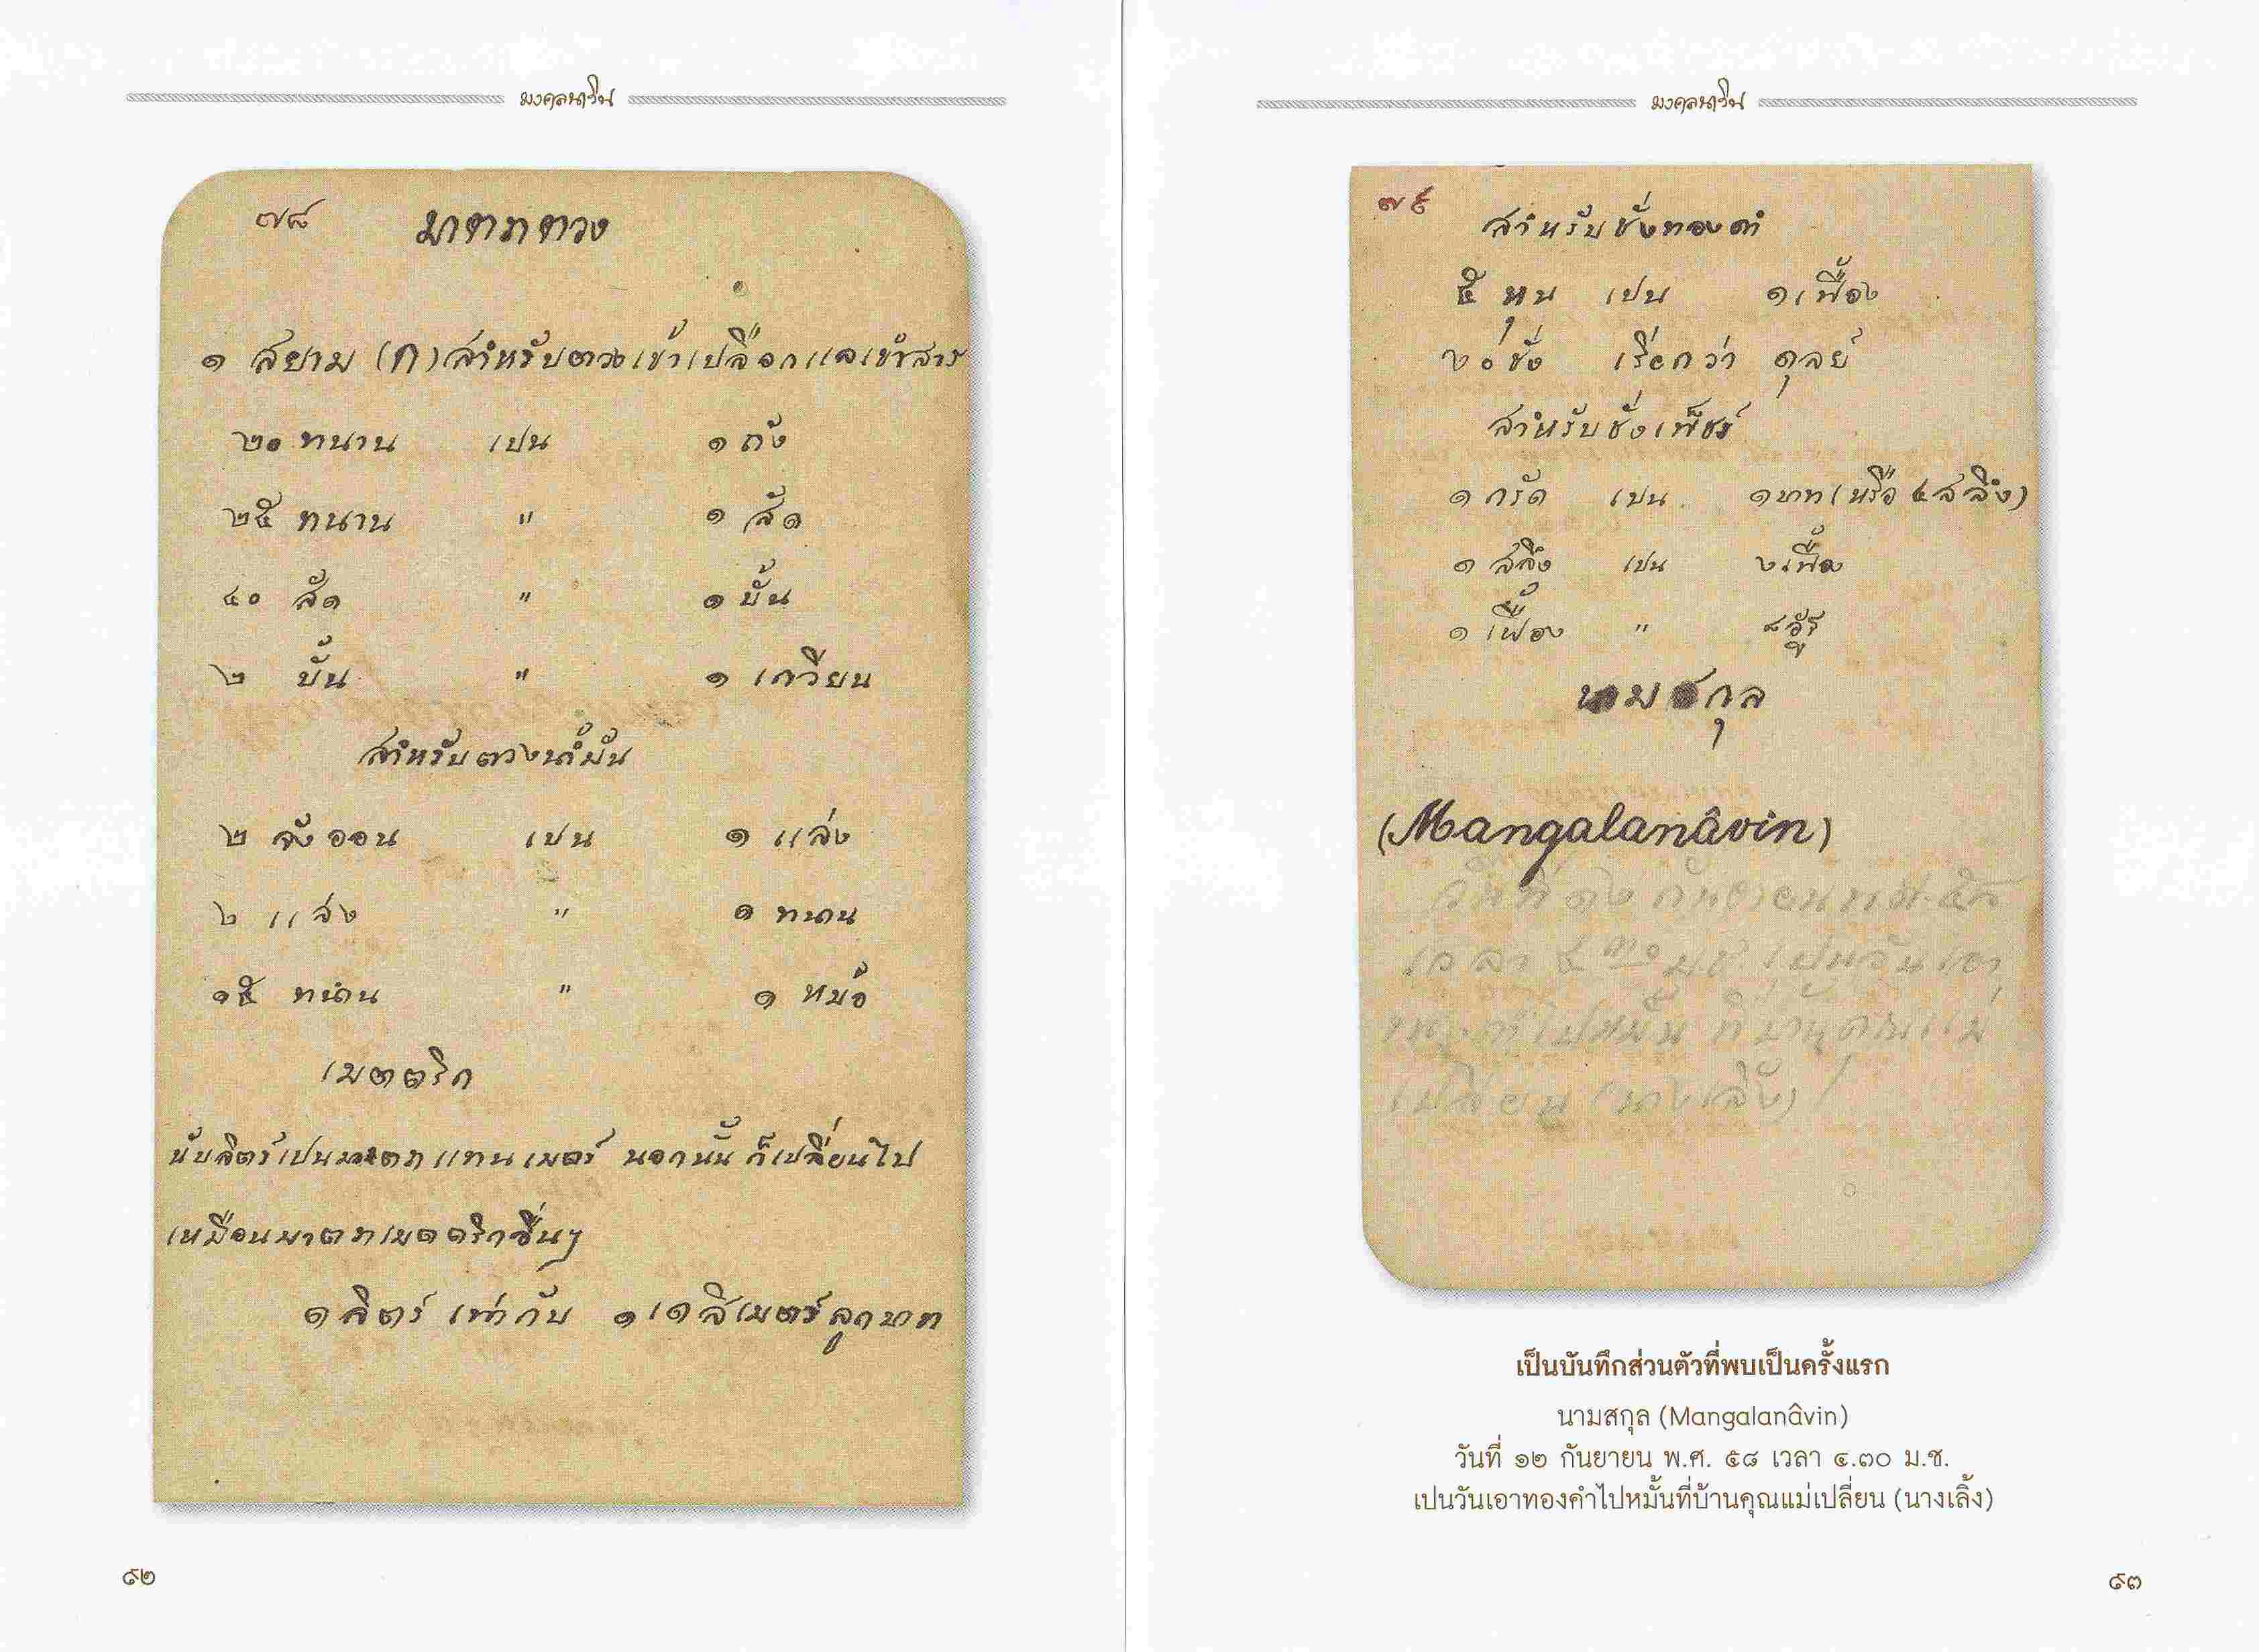 มงคลนาวิน
๗๘ มาตราตวง
๑ สยาม (ก) สำหรับตวงเข้าเปลือกแลเข้าสาร
๒๐ ทนาน เปน ๑ ถัง
๒๕ ทนาน " ๑ สัด
๔๐ สัด " ๑ บั้น
๒ บั้น " ๑ เกวียน
สำหรับตวงน้ำมัน
๒ จังออน เปน ๑ แล่ง
๒ แล่ง " ๑ ทนาน
๑๕ ทนาน " ๑ หม้อ
เมตตริก
นับลิตร์เปนมาตราแทนเมตร์ นอกนั้นก็เปลี่ยนไป
เหมือนมาตราเมตตริกอื่นๆ
๑ ลิตร์ เท่ากับ ๑ เดสิเมตร์ลูกบาท
๙๒
มงคลนาวิน
๗๙
สำหรับชั่งทองคำ
๕ หุน เปน ๑ เฟื้อง
๒๐ ชั่ง เรียกว่า ดุลย์
สำหรับชั่งเพ็ชร์
๑ กรัด เปน ๑ บาท (หรือ ๔ สลึง)
๑ สลึง เปน ๒ เฟื้อง
๑ เฟื้อง " ๘ อัฐ
นามสกุล
(Mangalanâvin)
วันที่ ๑๒ กันยายน พ.ศ. ๕๘
เวลา ๔.๓๐ ม.ช. เปนวันเอา
ทองคำไปหมั้น ที่บ้านคุณแม่
เปลี่ยน (นางเลิ้ง)
เป็นบันทึกส่วนตัวที่พบเป็นครั้งแรก
นามสกุล (Mangalanâvin)
วันที่ ๑๒ กันยายน พ.ศ. ๕๘ เวลา ๔.๓๐ ม.ช.
เปนวันเอาทองคำไปหมั้นที่บ้านคุณแม่เปลี่ยน (นางเลิ้ง)
๙๓